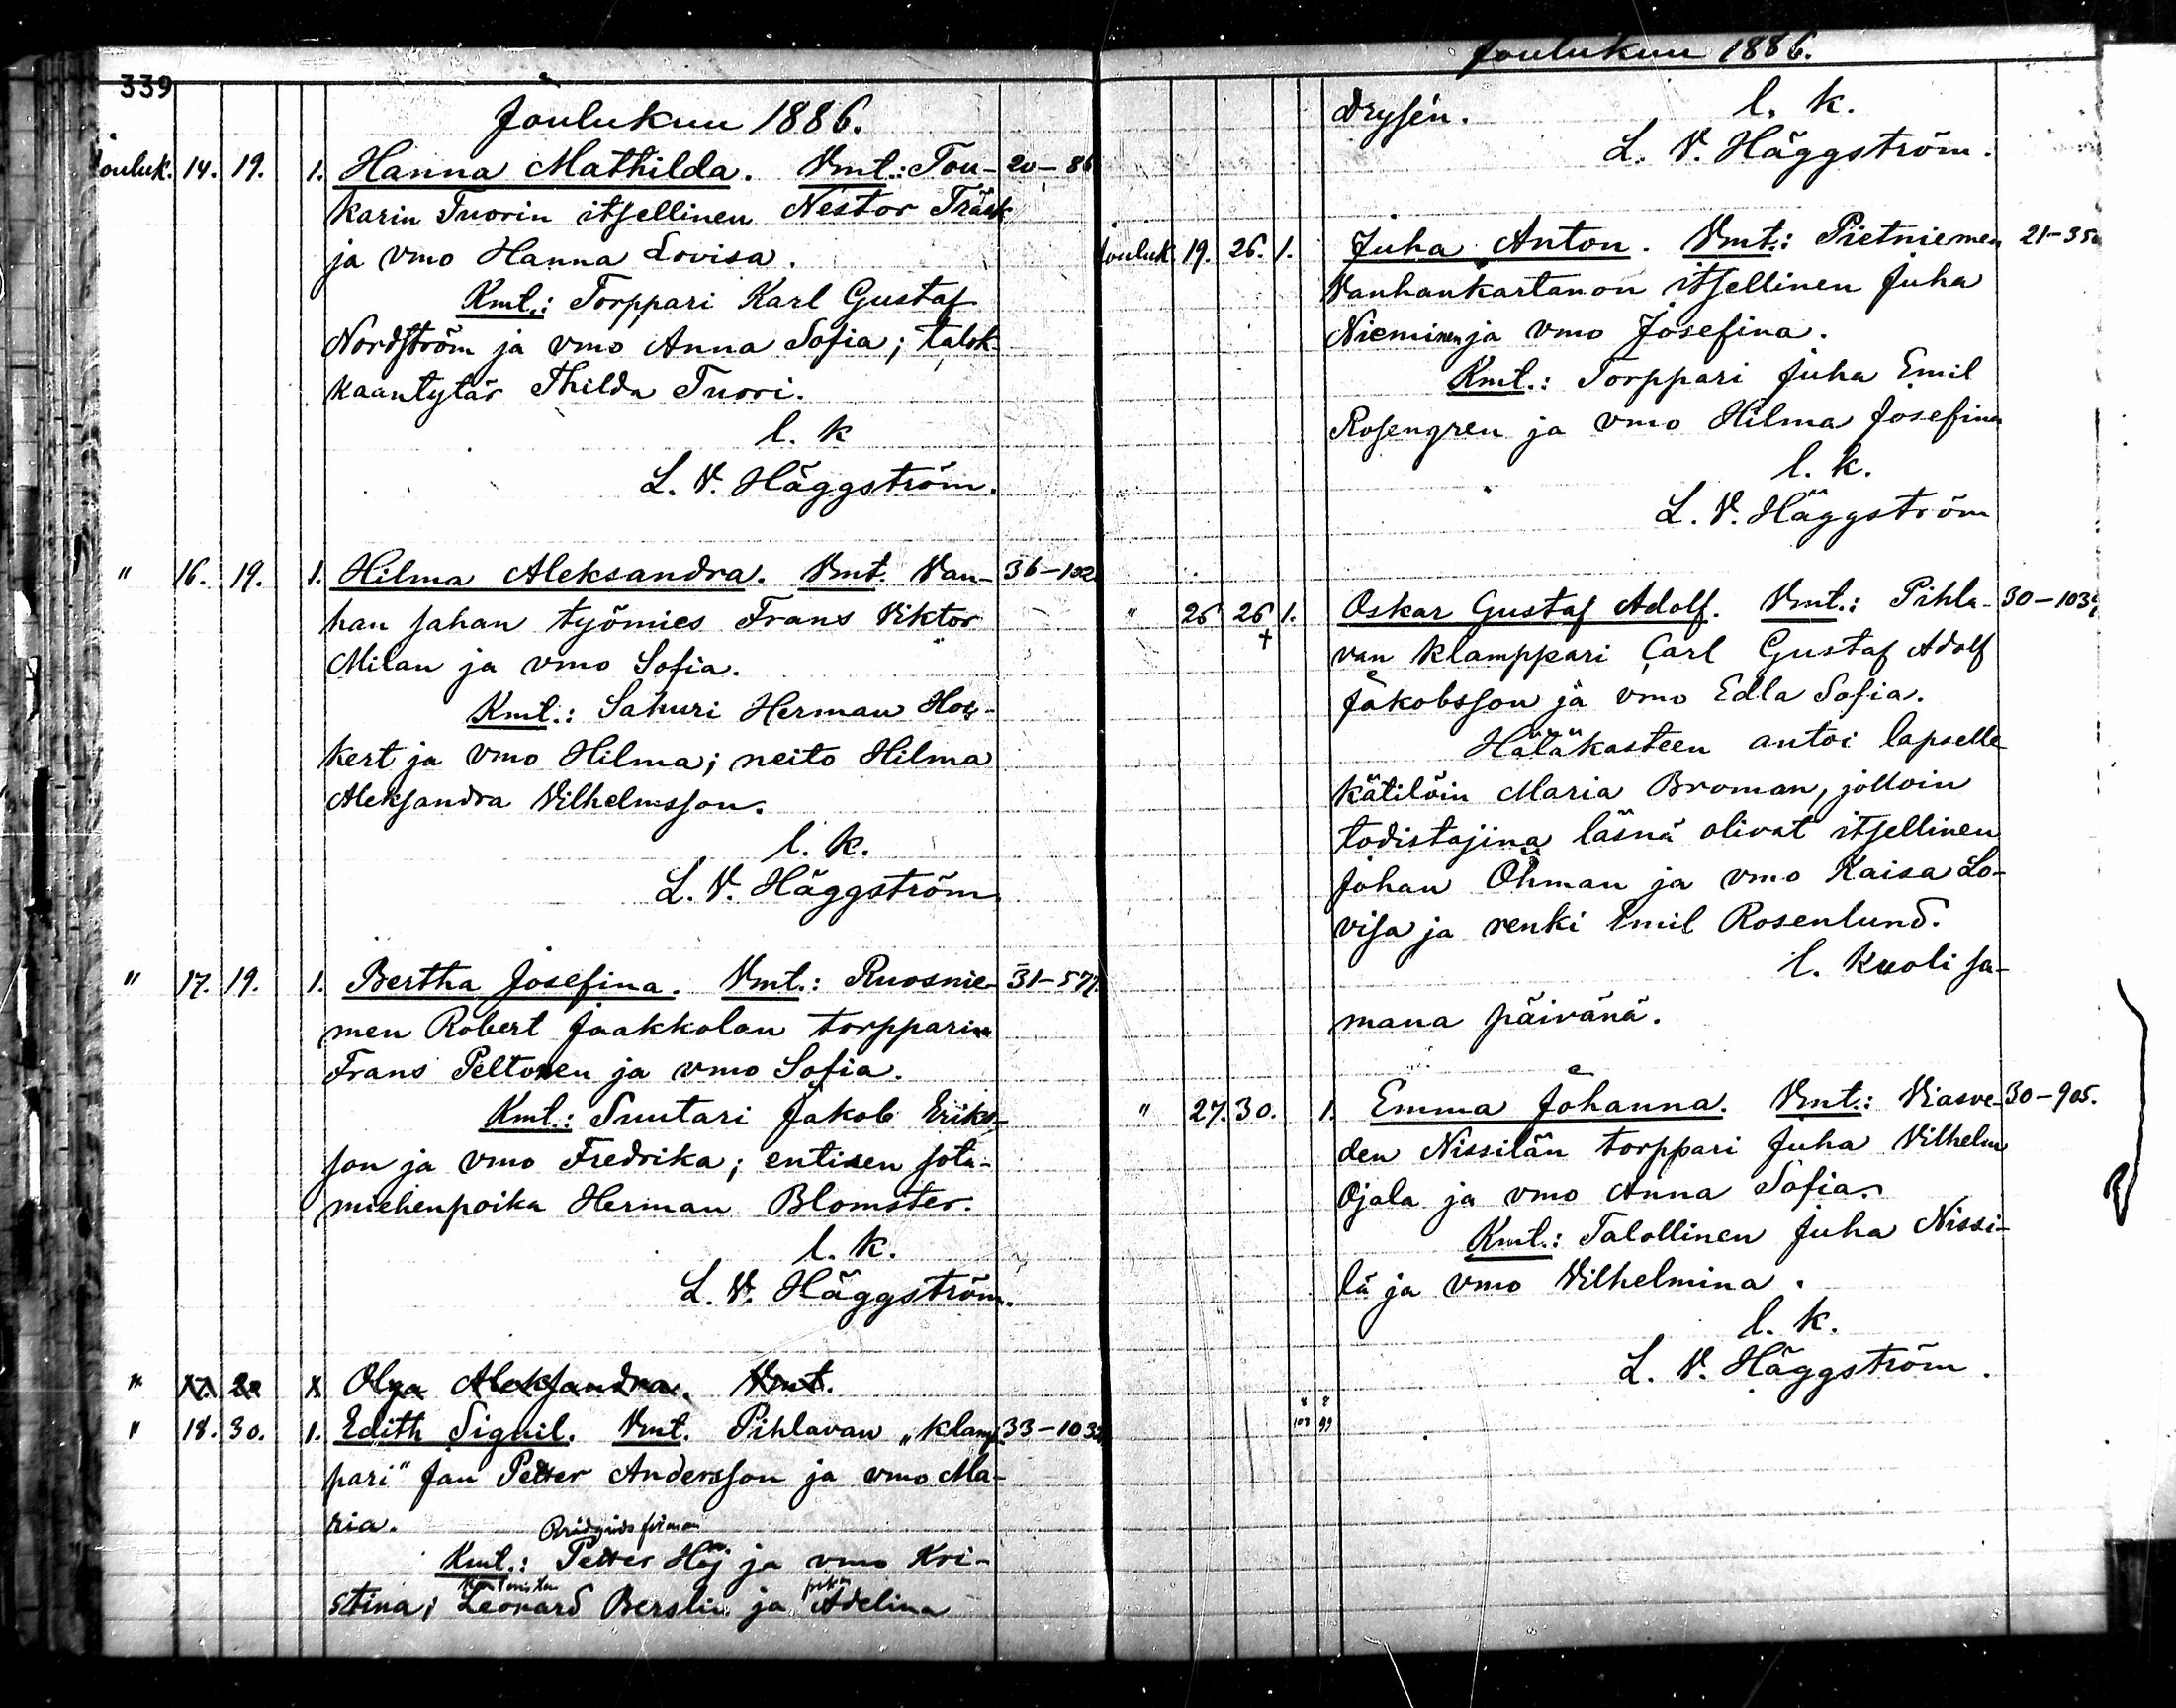 339
Joulukuu 1886.
Jouluk. 14. 19. 1. Hanna Mathilda. Vmt.: Tou- 20-86
karin Tuorin itsellinen Nestor Träsk
ja vmo Hanna Lovisa.
Kmt.: Torppari Karl Gustaf
Nordström ja vmo Anna Sofia; talok-
kaantytär Thilda Tuori.
l. k
L. V. Häggström.
" 16. 19. 1. Hilma Aleksandra. Vmt. Van- 36-102
han sahan työmies Frans Viktor
Milan ja vmo Sofia.
Kmt.: Sakuri Herman
kert ja vmo Hilma; neito Hilma
Aleksandra Vilhelmsson.
l. k.
L. V. Häggström
" 17. 19. 1. Bertha Josefina. Vmt.: Ruosnie- 31-577.
men Robert Jaakkolan torpparin
Frans Peltonen ja vmo Sofia.
Kmt.: Suutari Jakob Eriks-
son ja vmo Fredrika; entisen sota-
miehenpoika Herman Blomster.
l. k.
L. V. Häggström.
" Olga Aleksandra. Vmt.
" 18. 30. 1. Edith Signil. Vmt. Pihlavan „klamp- 33-103
pari" Jan Petter Andersson ja vmo Ma-
ria.
Kmt.: Petter Höj ja vmo Kri-
stina; Leonard Berslin ja Adelina
Joulukuu 1886.
Drysén. l. k.
L. V. Häggström.
Jouluk. 19. 26. 1. Juha Anton. Vmt.: Pietniemen 21-350
Vanhankartanon itsellinen Juha
Nieminen ja vmo Josefina.
Kmt.: Torppari Juha Emil
Rosengren ja vmo Hilma Josefina
l. k.
L. V. Häggström
" 26 26 1. Oskar Gustaf Adolf. Vmt.: Pihla- 30-103
+
van klamppari Carl Gustaf Adolf
Jakobsson ja vmo Edla Sofia.
Hätäkasteen antoi lapselle
kätilöin Maria Broman, jolloin
todistajina läsnä olivat itsellinen
Johan Öhman ja vmo Kaisa Lo-
visa ja renki Emil Rosenlund.
l. kuoli sa-
mana päivänä.
" 27. 30. 1. Emma Johanna. Vmt.: Viasve- 30-905.
den Nissilän torppari Juha Vilhelm
Ojala ja vmo Anna Sofia.
Kmt.: Talollinen Juha Nissi-
lä ja vmo Vilhelmina.
l. k.
L. V. Häggström.
103 99